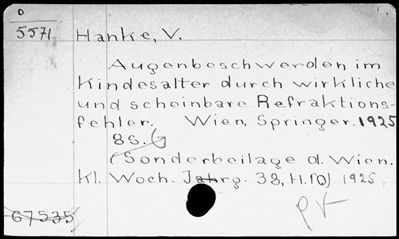 5571
Hanke, V.
Augenbeschwerden im
Kindesalter durch wirkliche
und scheinbare Refraktions-
fehler. Wien, Springer. 1925
8S.
(Sonderbeilage d. Wien.
Kl. Woch. Jahrg. 38, H. 10) 1925,
67535